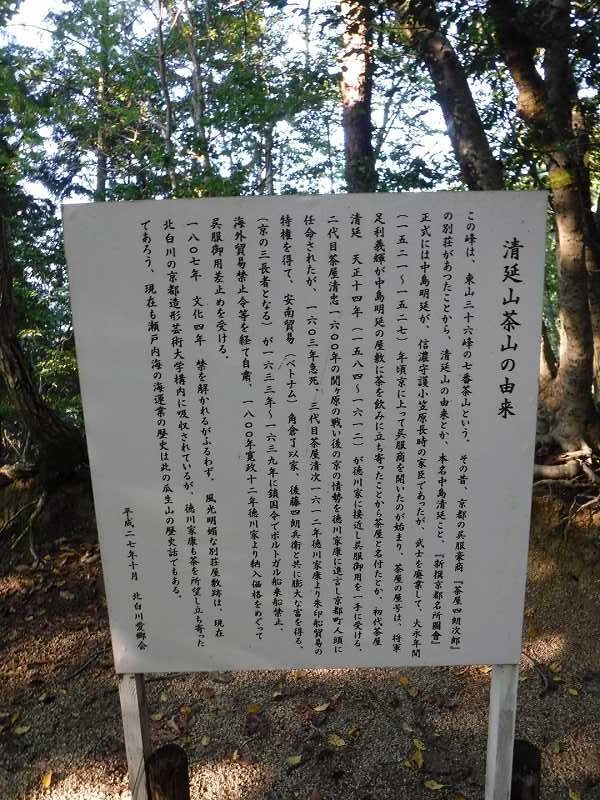 清延山茶山の由来
この峰は、東山三十六峰の七番茶山という。その昔、京都の呉服豪商『茶屋四朗次郎』
の別荘があったことから、清延山の由来とか、本名中島清延こと、『新撰京都名所圖會』
正式には中島明延が、信濃守護小笠原長時の家臣であったが、武士を廃業して、大永年間
（一五二一～一五二七）年頃京に上って呉服商を開いたのが始まり、茶屋の屋号は、将軍
足利義輝が中島明延の屋敷に茶を飲みに立ち寄ったことから茶屋と名付たとか、初代茶屋
清延　天正十四年（一五八四～一六一二）が徳川家に接近し呉服御用を一手に受ける。
二代目茶屋清忠一六〇〇年の関ヶ原の戦い後の京の情勢を徳川家康に進言し京都町人頭に
任命されたが、一六〇三年急死。三代目茶屋清次一六一二年徳川家康より朱印船貿易の
特権を得て、安南貿易（ベトナム）角倉了以家、後藤四朗兵衛と共に膨大な富を得る。
（京の三長者となる）が一六三三年～一六三九年に鎖国令でポルトガル船来船禁止、
海外貿易禁止令等を経て自粛、一八〇〇年寛政十二年徳川家より納入価格をめぐって
呉服御用差止めを受ける。
一八〇七年　文化四年　禁を解かれるがふるわず。　風光明媚な別荘屋敷跡は、現在
北白川の京都造形芸術大学構内に吸収されているが、徳川家康も茶を所望し立ち寄った
であろう、現在も瀬戸内海の海運業の歴史は此の瓜生山の歴史話でもある。
平成二七年十月　北白川愛郷会